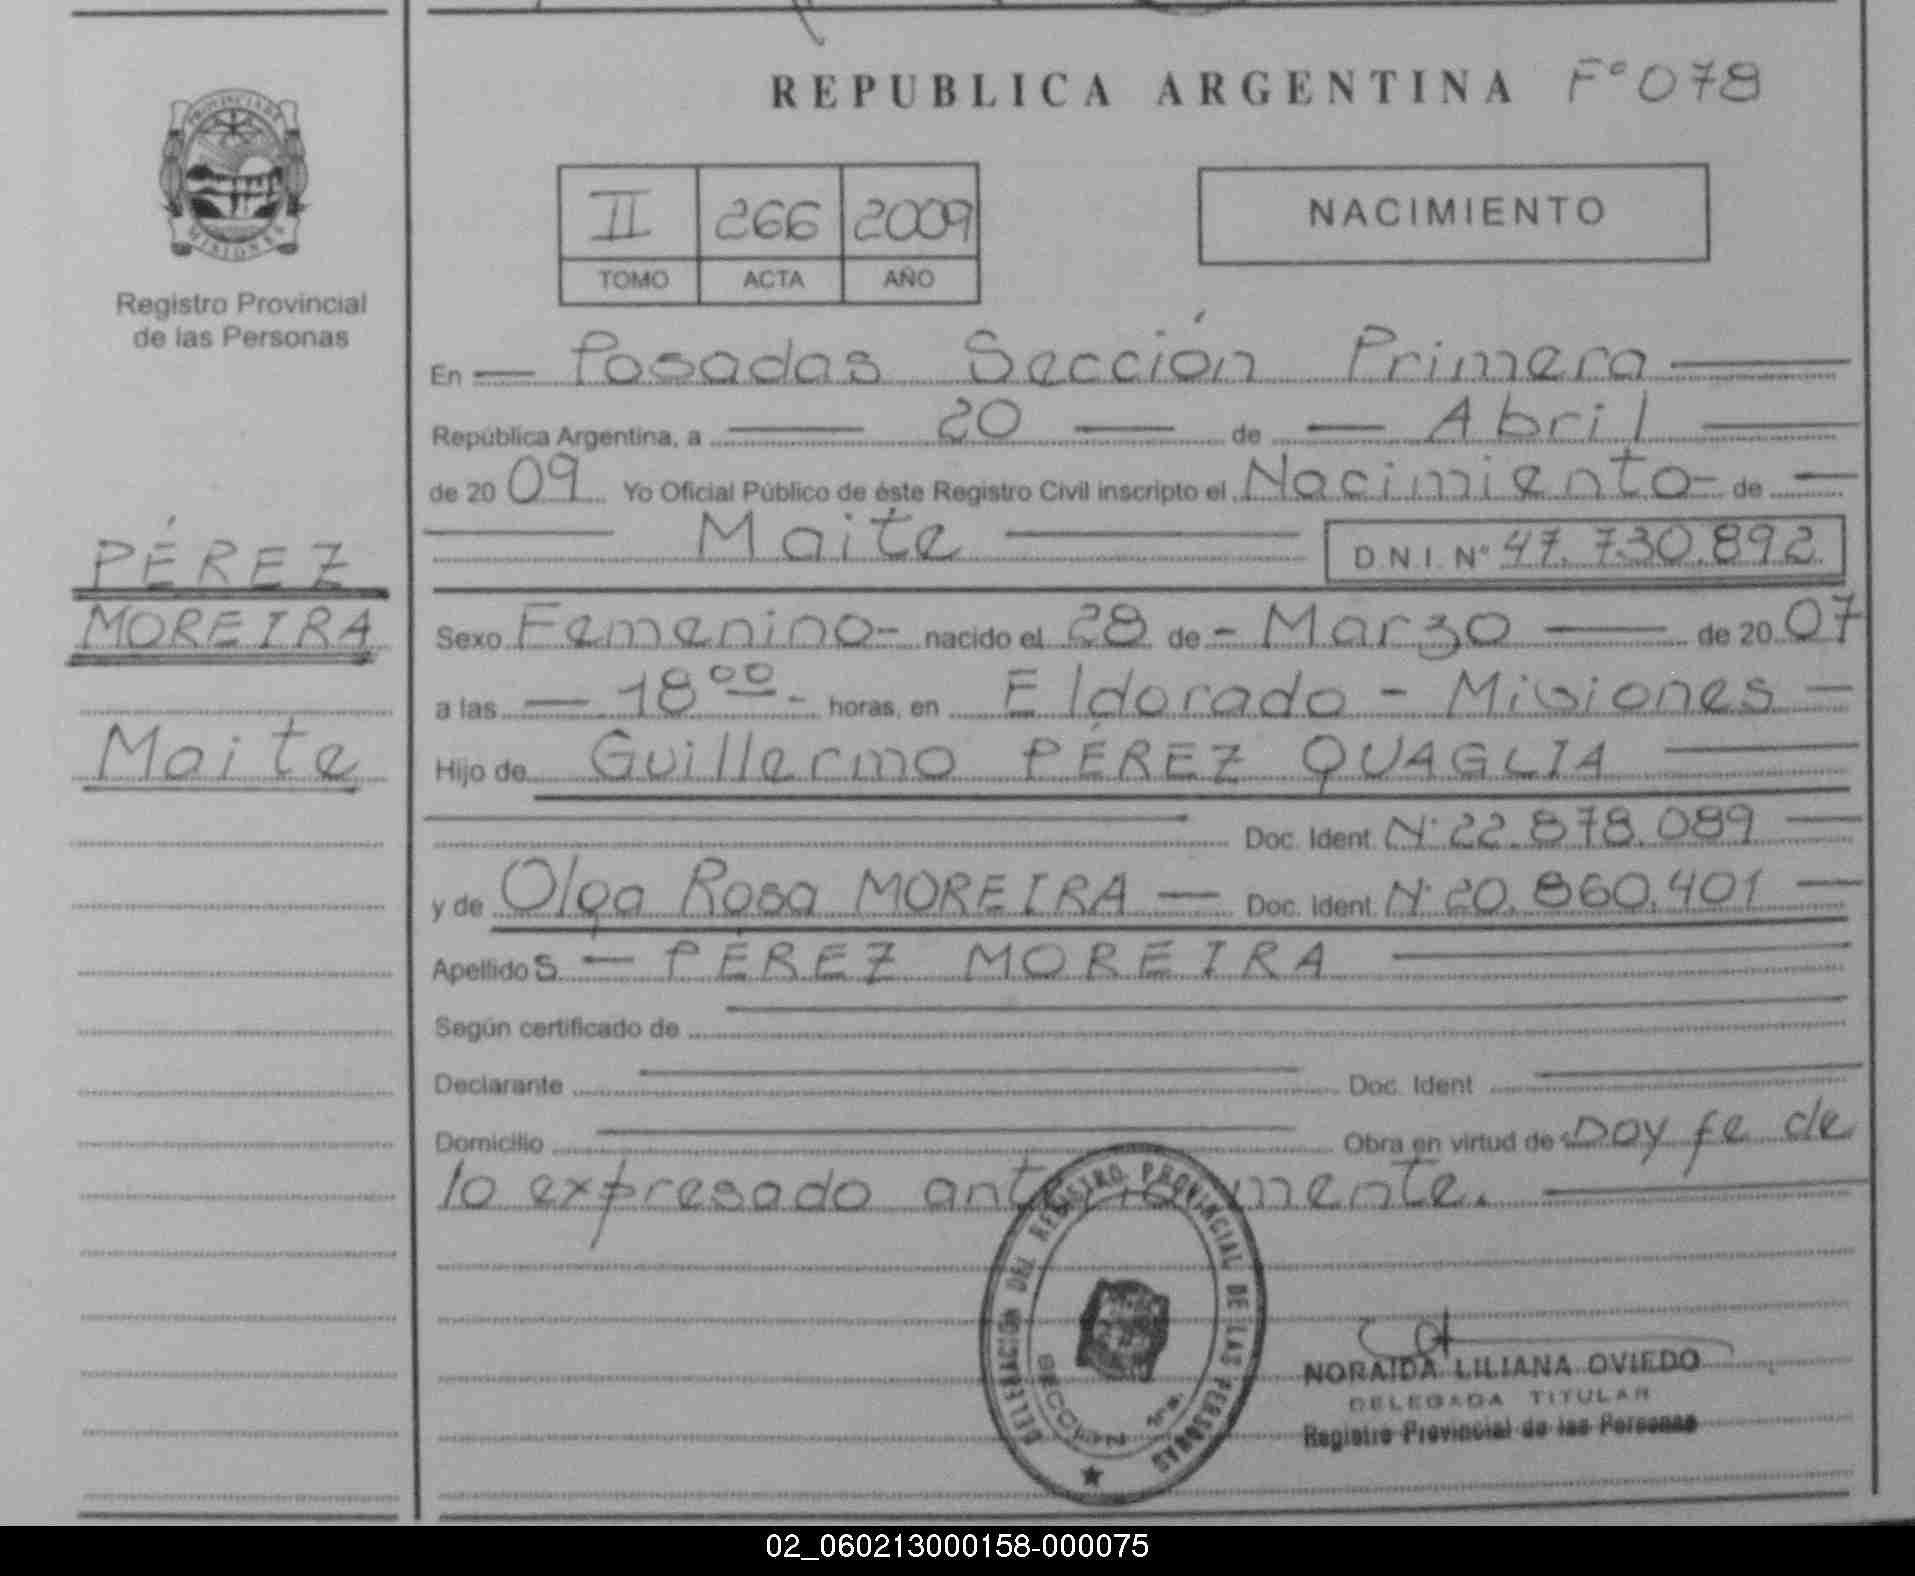 REPUBLICA ARGENTINA F° 078
PROVINCIA DE
MISIONES
Registro Provincial
de las Personas
II 266 2009
TOMO ACTA AÑO
NACIMIENTO
En Posadas Sección Primera
República Argentina, a 20 de Abril
de 2009 Yo Oficial Público de éste Registro Civil inscripto el Nacimiento de
Maite D.N.I. N° 47.730.892
PÉREZ
MOREIRA
Maite
Sexo Femenino nacido el 28 de Marzo de 2007
a las 18 00 horas, en Eldorado - Misiones
Hijo de Guillermo PÉREZ QUAGLIA
Doc. Ident. N° 22.878.089
y de Olga Rosa MOREIRA Doc. Ident. N° 20.860.401
Apellidos PÉREZ MOREIRA
Según certificado de
Declarante Doc. Ident
Domicilio Obra en virtud de Doy fe de
lo expresado anteriormente.
DELEGACION DEL REGISTRO PROVINCIAL DE LAS PERSONAS
SECCION 1ra.
NORAIDA LILIANA OVIEDO
DELEGADA TITULAR
Registro Provincial de las Personas
02_060213000158-000075